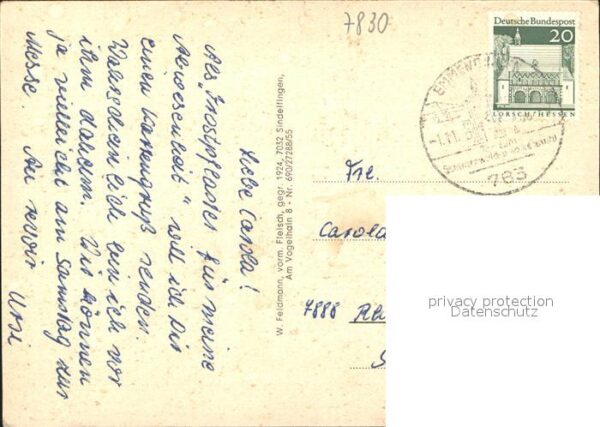 7830
Deutsche Bundespost
20
LORSCH/HESSEN
EMMENDINGEN
-1.11.
783
Liebe Carola!
Als "Trostpflaster für meine
Abwesenheit" will ich Dir
einen Kartengruß senden.
Wahrscheinlich bin ich vor
ihm daheim. Wir können
ja vielleicht am Samstag zur
Messe. Ade
Ursi
W. Feldmann, vorm. Fleisch, gegr. 1924, 7032 Sindelfingen,
Am Vogelhain 8 · Nr. 690/27288/55
Frl.
Carola
7888
privacy protection
Datenschutz